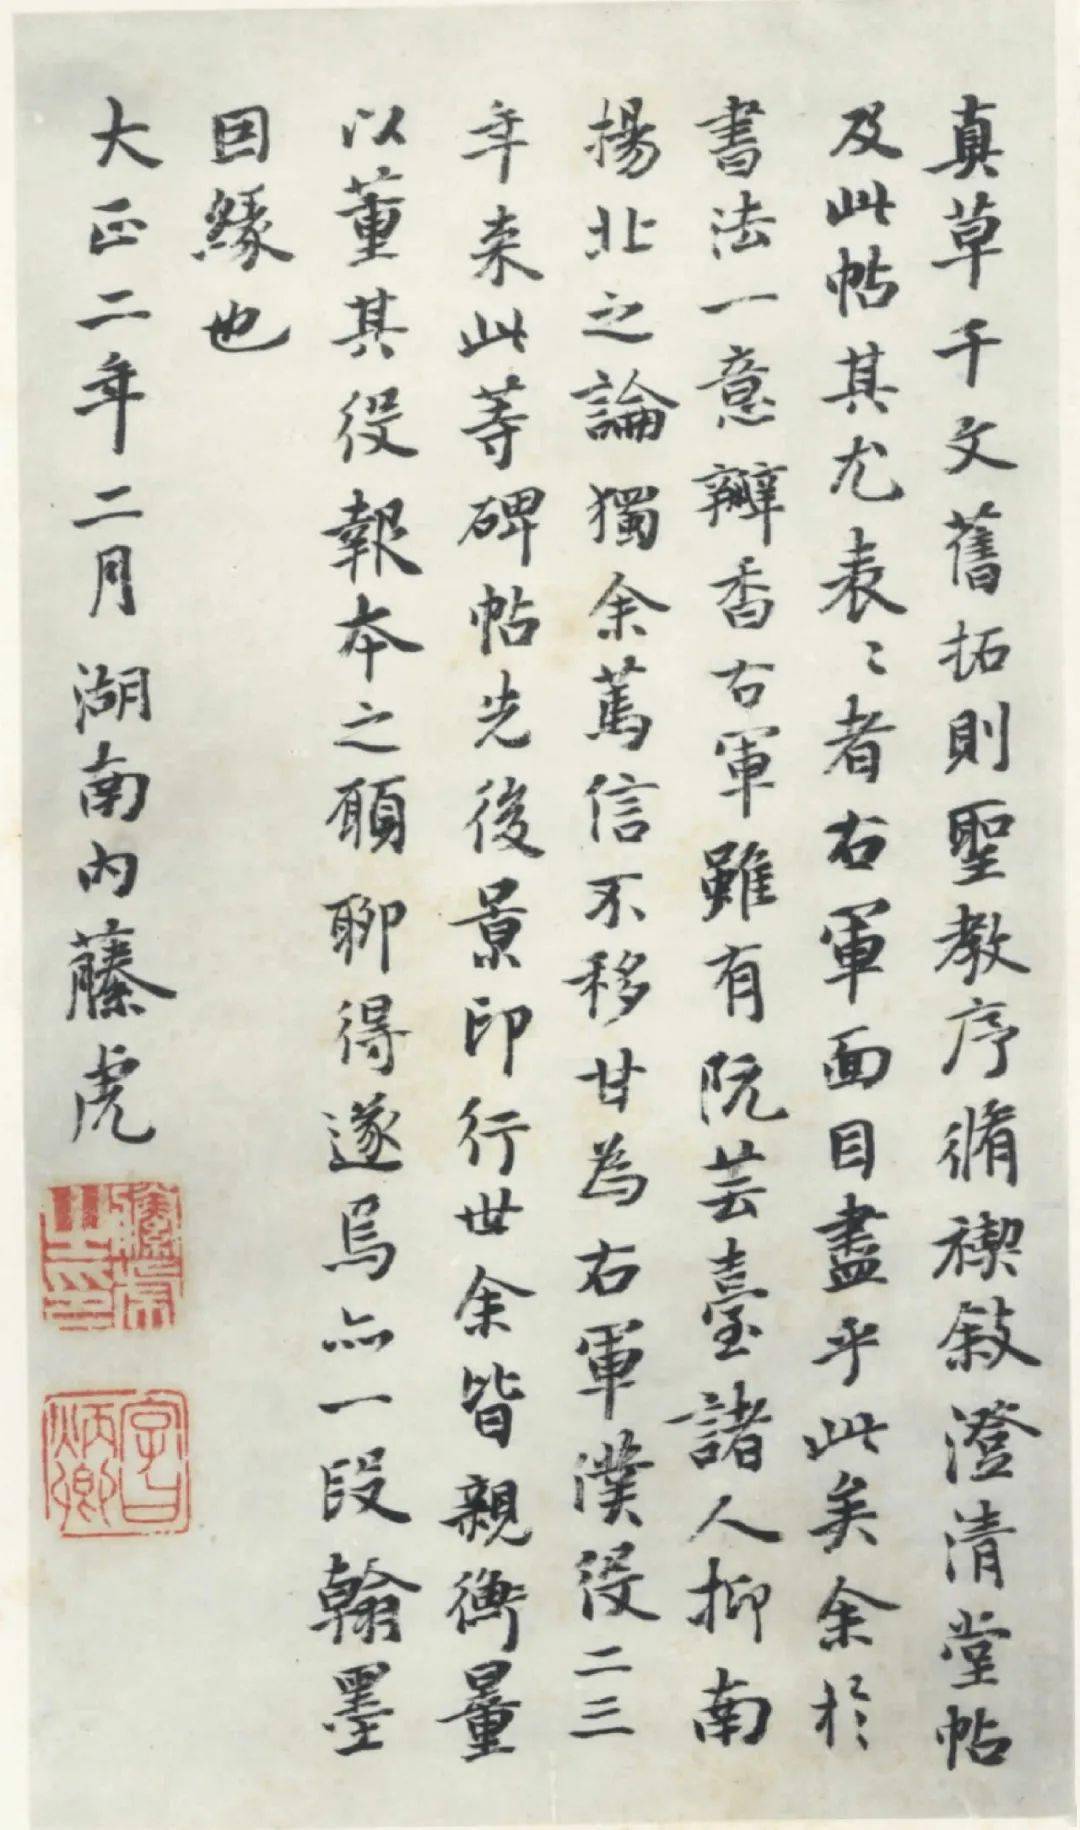 真草千文舊拓則聖教序脩禊敍澄清堂帖
及此帖其尤表〻者右軍面目盡乎此矣余於
書法一意瓣香右軍雖有阮芸臺諸人抑南
揚北之論獨余篤信不移甘為右軍僕役二三
年来此等碑帖先後景印行世余皆親衡量
以董其役報本之願聊得遂焉亦一段翰墨
因緣也
大正二年二月 湖南内藤虎
字曰炳卿